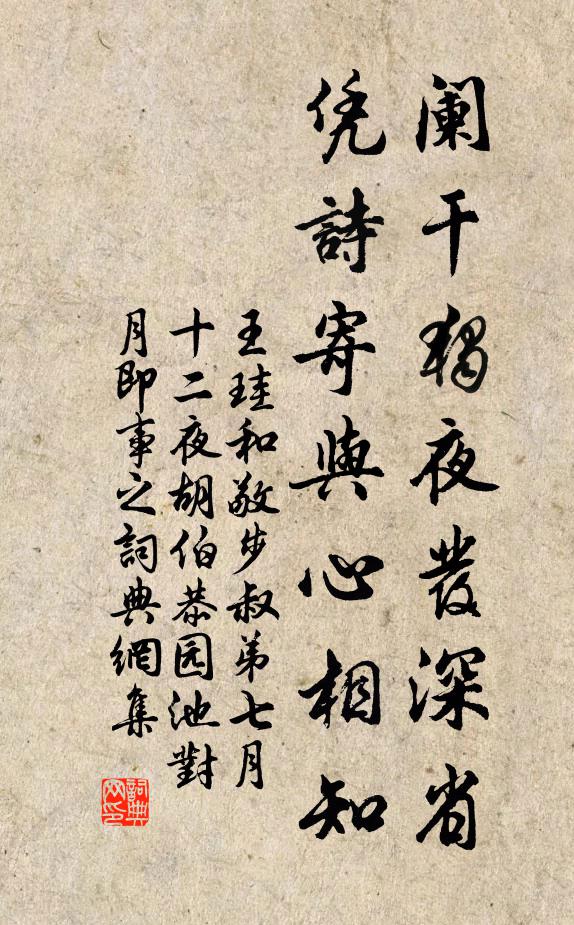 阑干独夜發深省
凭詩寄與心相知
王珪和敬步叔弟七月
十二夜胡伯恭园池對
月即事之詞典網集
詞典网印